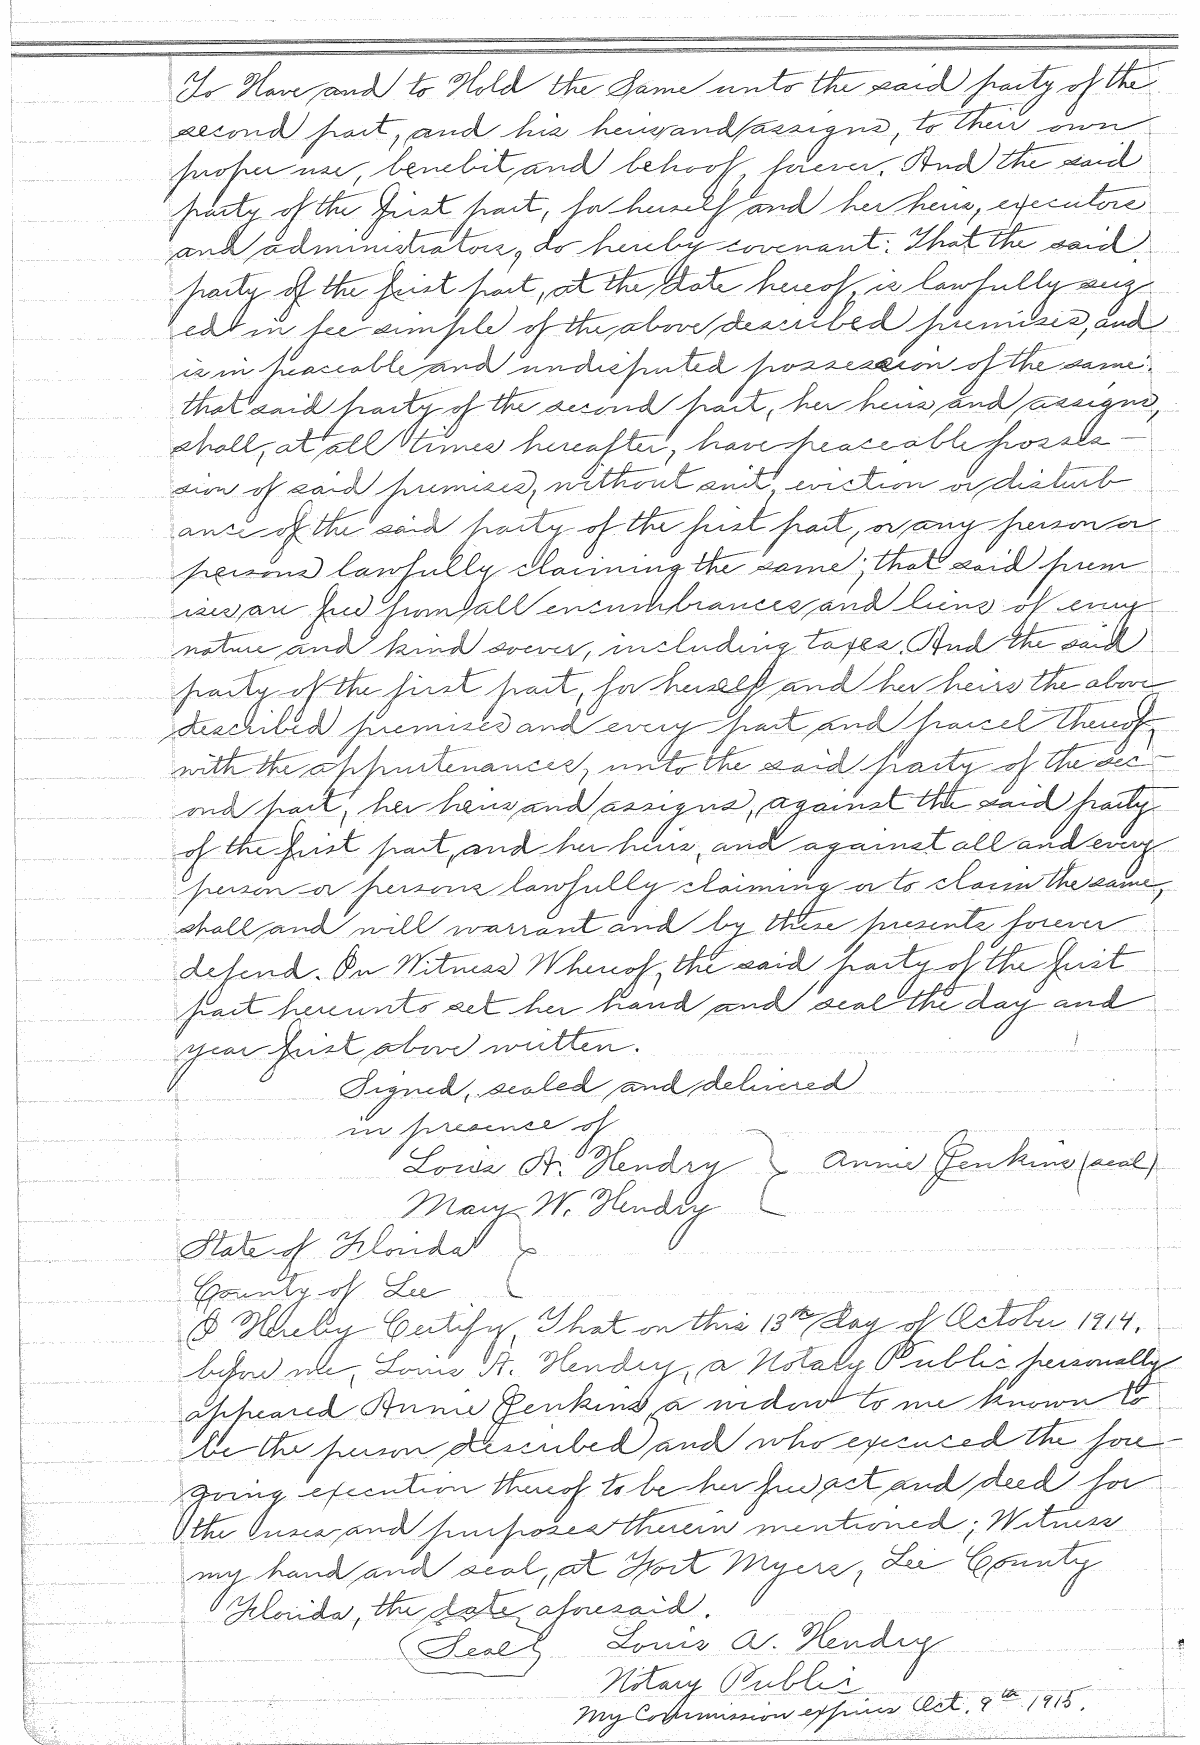 To Have and to Hold the Same unto the said party of the
second part, and his heirs and assigns, to their own
proper use, benebit and behoof, forever. And the said
party of the first part, for herself and her heirs, executors
and administrators, do hereby covenant: That the said
party of the first part, at the date hereof, is lawfully seiz
ed in fee simple of the above described premises, and
is in peaceable and undisputed possession of the same:
that said party of the second part, her heirs and assigns,
shall, at all times hereafter, have peaceable posses-
sion of said premises, without suit, eviction or disturb
ance of the said party of the first part, or any person or
persons lawfully claiming the same; that said prem
ises are free from all encumbrances and liens of every
nature and kind soever, including taxes. And the said
party of the first part, for herself and her heirs the above
described premises and every part and parcel thereof,
with the appurtenances, unto the said party of the sec-
ond part, her heirs and assigns, against the said party
of the first part, and her heirs, and against all and every
person or persons lawfully claiming or to claim the same,
shall and will warrant and by these presents forever
defend. In Witness Whereof, the said party of the first
part hereunto set her hand and seal the day and
year first above written.
Signed, sealed and delivered
in presence of
Louis A. Hendry } Annie Jenkins (seal)
Mary W. Hendry
State of Florida }
County of Lee
I Hereby Certify, That on this 13th day of October 1914,
before me, Louis A. Hendry, a Notary Public personally
appeared Annie Jenkins, a widow to me known to
be the person described and who execuced the fore-
going execution thereof to be her free act and deed for
the uses and purposes therein mentioned; Witness
my hand and seal, at Fort Myers, Lee County
Florida, the date aforesaid.
(Seal) Louis A. Hendry
Notary Public
My Commission expires Oct. 9th 1915.